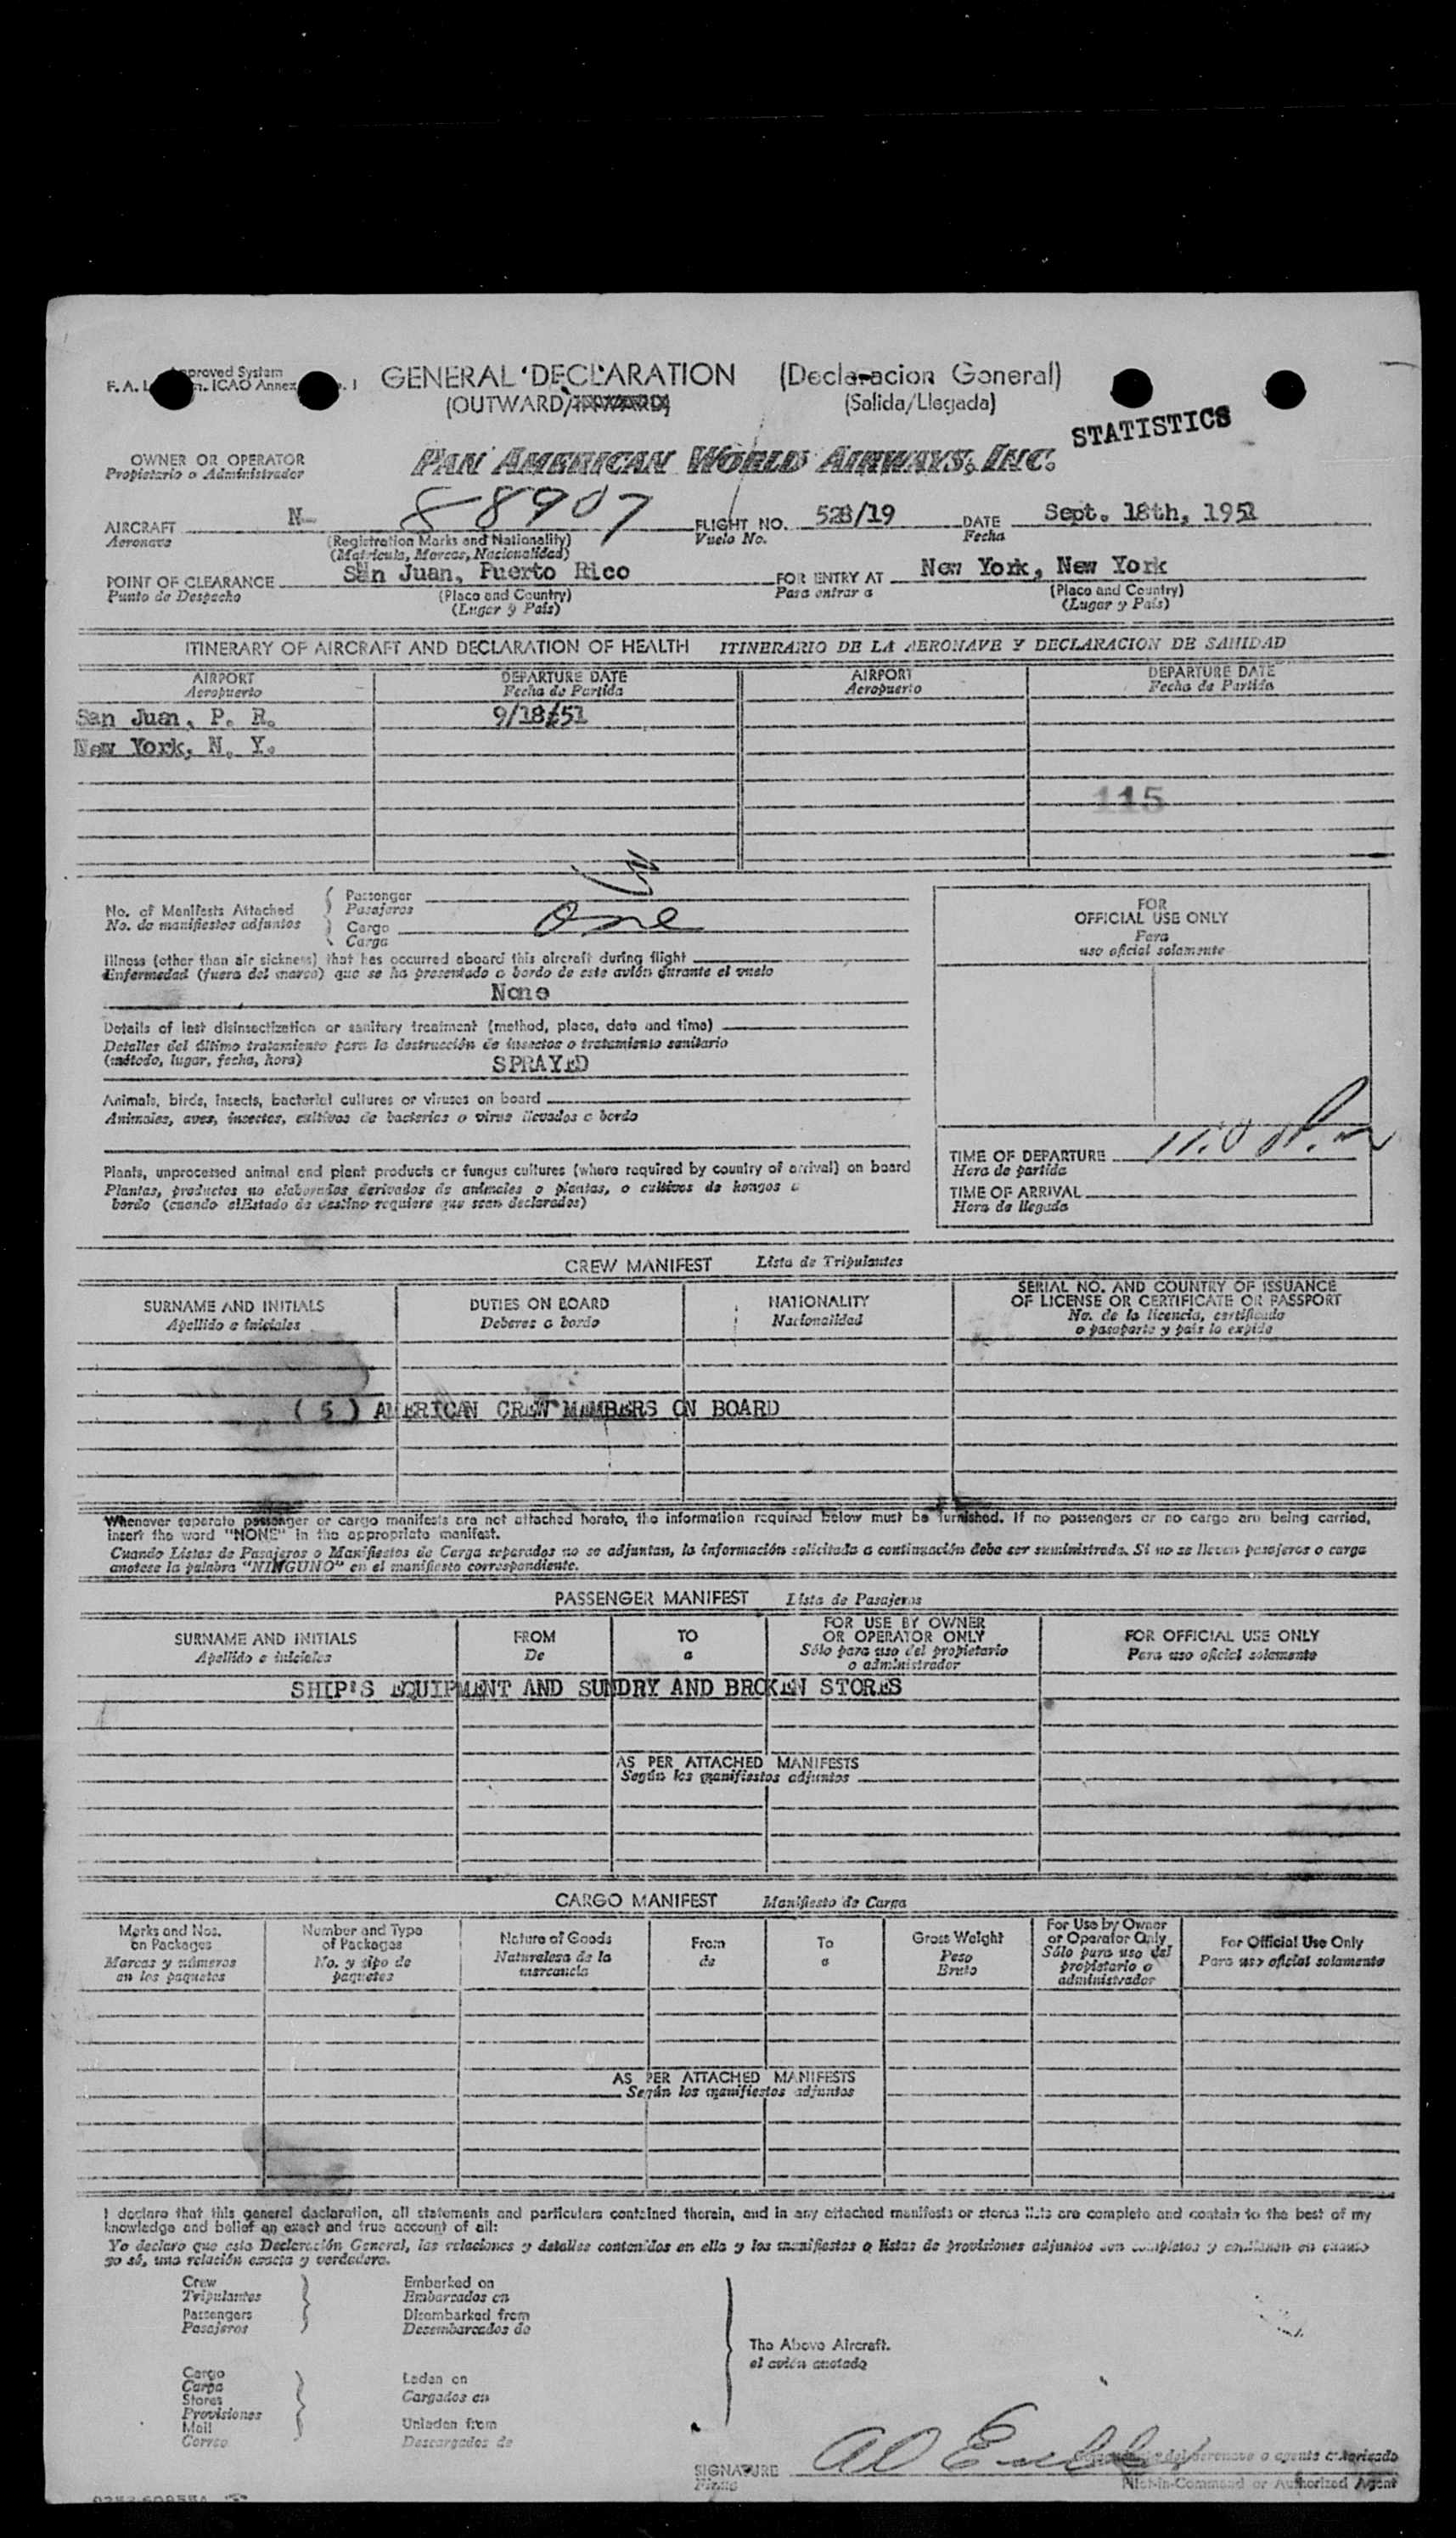 Approved System
F. A. L. ICAO Annex 1
GENERAL DECLARATION (Declaracion General)
(OUTWARD/INWARD) (Salida/Llegada)
STATISTICS
OWNER OR OPERATOR
Propietario o Administrador
PAN AMERICAN WORLD AIRWAYS, INC.
AIRCRAFT N- 88907 FLIGHT NO. 528/19 DATE Sept. 18th, 1951
Aeronave (Registration Marks and Nationality) Vuelo No. Fecha
(Matricula, Marcas, Nacionalidad)
POINT OF CLEARANCE San Juan, Puerto Rico FOR ENTRY AT New York, New York
Punto de Despacho (Place and Country) Para entrar a (Place and Country)
(Lugar y País) (Lugar y País)
ITINERARY OF AIRCRAFT AND DECLARATION OF HEALTH ITINERARIO DE LA AERONAVE Y DECLARACION DE SANIDAD
AIRPORT DEPARTURE DATE AIRPORT DEPARTURE DATE
Aeropuerto Fecha de Partida Aeropuerto Fecha de Partida
San Juan, P. R. 9/18/51
New York, N. Y.
115
No. of Manifests Attached Passenger
No. de manifiestos adjuntos Pasajeros
Cargo One
Carga
Illness (other than air sickness) that has occurred aboard this aircraft during flight
Enfermedad (fuera del mareo) que se ha presentado a bordo de este avión durante el vuelo
None
Details of last disinsectization or sanitary treatment (method, place, date and time)
Detalles del último tratamiento para la destrucción de insectos o tratamiento sanitario
(método, lugar, fecha, hora)
SPRAYED
Animals, birds, insects, bacterial cultures or viruses on board
Animales, aves, insectos, cultivos de bacterias o virus llevados a bordo
Plants, unprocessed animal and plant products or fungus cultures (where required by country of arrival) on board
Plantas, productos no elaborados derivados de animales o plantas, o cultivos de hongos a
bordo (cuando el Estado de destino requiere que sean declarados)
FOR
OFFICIAL USE ONLY
Para
uso oficial solamente
TIME OF DEPARTURE
Hora de partida
TIME OF ARRIVAL
Hora de llegada
CREW MANIFEST Lista de Tripulantes
SURNAME AND INITIALS DUTIES ON BOARD NATIONALITY SERIAL NO. AND COUNTRY OF ISSUANCE
OF LICENSE OR CERTIFICATE OR PASSPORT
Apellido e iniciales Deberes a bordo Nacionalidad No. de la licencia, certificado
o pasaporte y país lo expide
( 5 ) AMERICAN CREW MEMBERS ON BOARD
Whenever separate passenger or cargo manifests are not attached hereto, the information required below must be furnished. If no passengers or no cargo are being carried,
insert the word "NONE" in the appropriate manifest.
Cuando Listas de Pasajeros o Manifiestos de Carga separados no se adjuntan, la información solicitada a continuación debe ser suministrada. Si no se llevan pasajeros o carga
anotese la palabra "NINGUNO" en el manifiesto correspondiente.
PASSENGER MANIFEST Lista de Pasajeros
SURNAME AND INITIALS FROM TO FOR USE BY OWNER
OR OPERATOR ONLY FOR OFFICIAL USE ONLY
Apellido e iniciales De a Sólo para uso del propietario
o administrador Para uso oficial solamente
SHIP'S EQUIPMENT AND SUNDRY AND BROKEN STORES
AS PER ATTACHED MANIFESTS
Según los manifiestos adjuntos
CARGO MANIFEST Manifiesto de Carga
Marks and Nos.
on Packages
Marcas y números
en los paquetes
Number and Type
of Packages
No. y tipo de
paquetes
Nature of Goods
Naturalesa de la
mercancia
From
de
To
a
Gross Weight
Peso
Bruto
For Use by Owner
or Operator Only
Sólo para uso del
propietario o
administrador
For Official Use Only
Para uso oficial solamente
AS PER ATTACHED MANIFESTS
Según los manifiestos adjuntos
I declare that this general declaration, all statements and particulars contained therein, and in any attached manifests or stores lists are complete and contain to the best of my
knowledge and belief an exact and true account of all:
Yo declaro que esta Declaración General, las relaciones y detalles contenidos en ella y los manifiestos o listas de provisiones adjuntos son completos y contienen en cuanto
yo sé, una relación exacta y verdadera.
Crew Embarked on
Tripulantes Embarcados en
Passengers Disembarked from
Pasajeros Desembarcados de
The Above Aircraft.
el avión anotado
Cargo Laden on
Carga
Stores Cargados en
Provisiones
Mail Unladen from
Correo Descargados de
SIGNATURE
Firma
del aeronave o agente autorizado
Pilot-in-Command or Authorized Agent